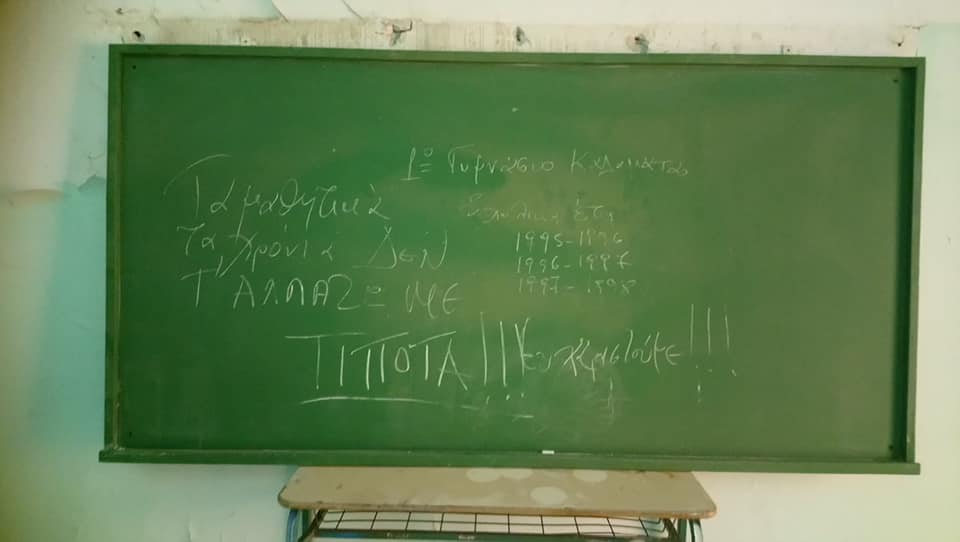 1ο Γυμνάσιο Καλαμάτας
Σχολικά Έτη
1995-1996
1996-1997
1997-1998
Τα μαθητικά
τα χρόνια Δεν
Τ' ΑΛΛΑΖΩ ΜΕ
ΤΙΠΟΤΑ!!! Ευχαριστούμε!!!